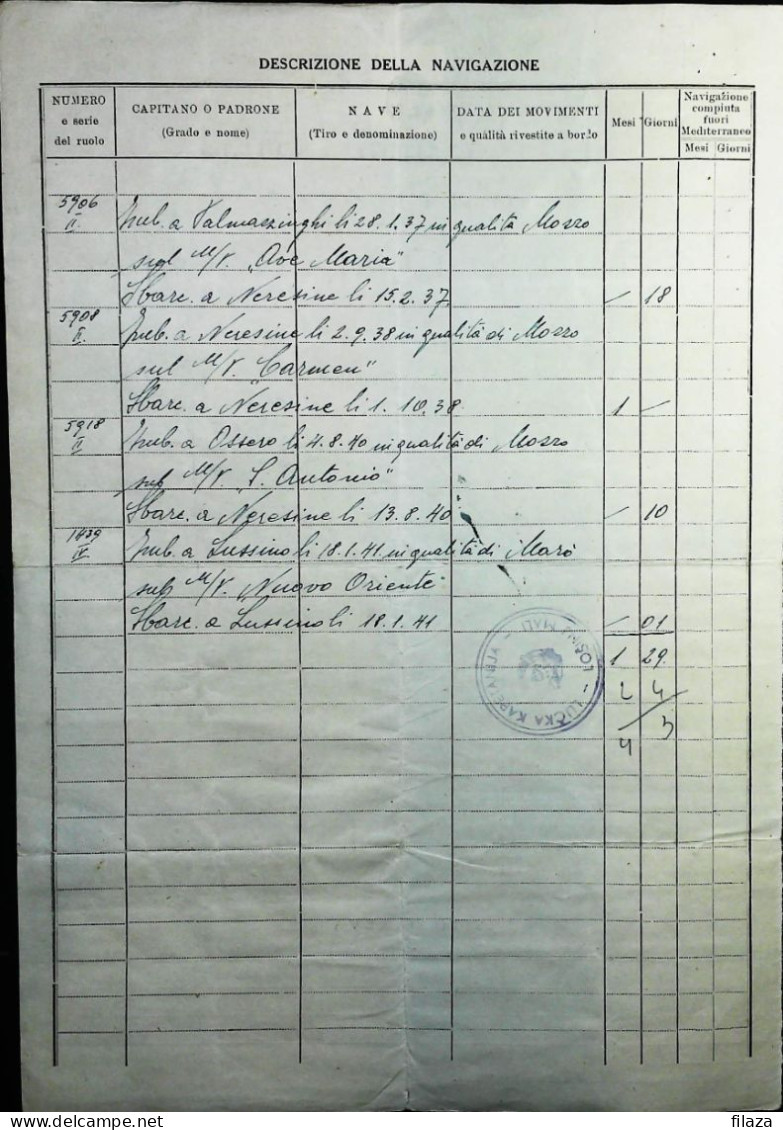 DESCRIZIONE DELLA NAVIGAZIONE
NUMERO e serie del ruolo
CAPITANO O PADRONE (Grado e nome)
NAVE (Tiro e denominazione)
DATA DEI MOVIMENTI e qualità rivestite a bordo
Mesi Giorni
Navigazione compiuta fuori Mediterraneo
Mesi Giorni
5906 II Imb. a Valmazzinghi li 28.1.37 in qualità Mozzo
sul M/V. "Ave Maria"
Sbarc. a Neresine li 15.2.37 / 18
5908 II Imb. a Neresine li 2.9.38 in qualità di Mozzo
sul M/V. "Carmen"
Sbarc. a Neresine li 1.10.38 1 /
5918 II Imb. a Ossero li 4.8.40 in qualità di Mozzo
sul M/V. "S. Antonio"
Sbarc. a Neresine li 13.8.40 / 10
1439 IV Imb. a Lussino li 18.1.41 in qualità di Marò
sul M/V. Nuovo Oriente
Sbarc. a Lussino li 18.1.41 / 01
1 29
2 4
4 3
LUČKA KAPETANIJA - LOŠINJ MALI -
filaza
filaza